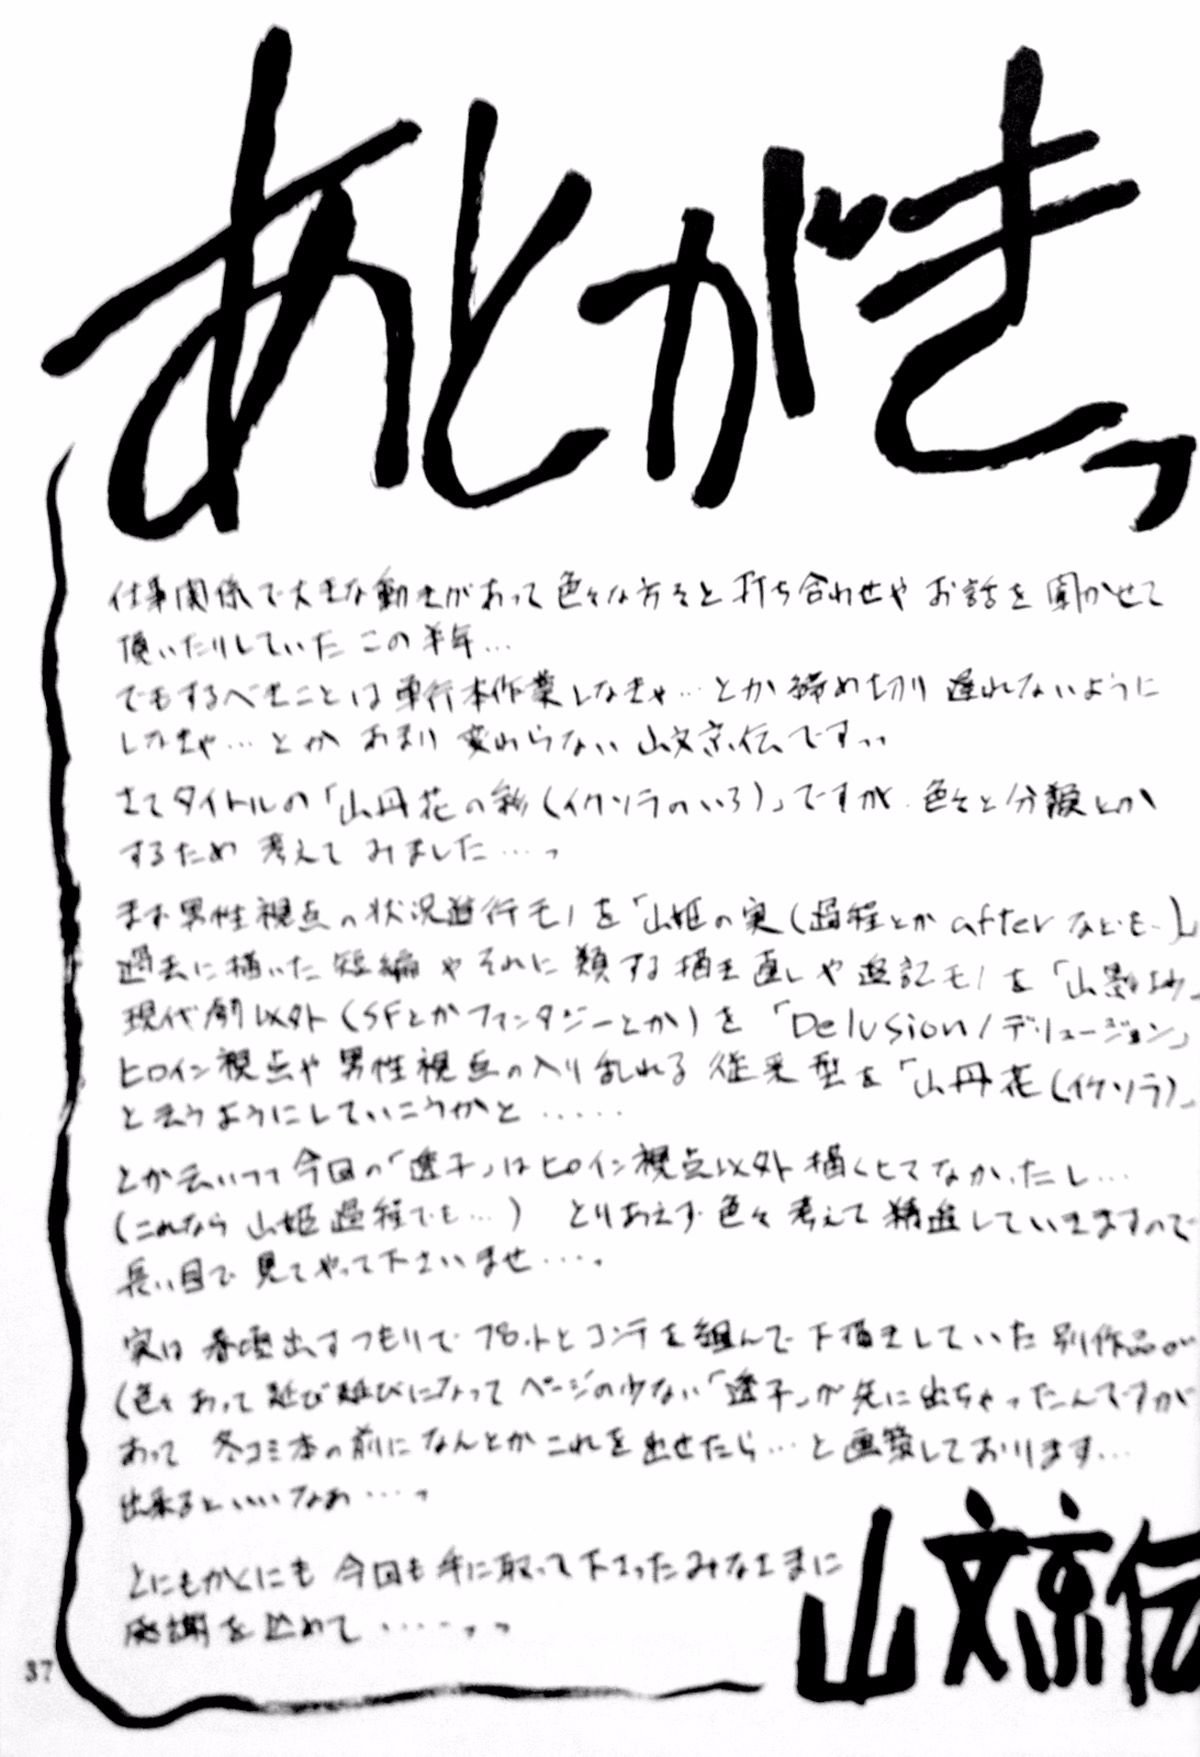 あとがきっ
仕事関係で大きな動きがあって色々な方々と打ち合わせや お話を聞かせて
頂いたりしていた この半年…
でもするべきことは 単行本作業しなきゃ…とか 締め切り遅れないように
しなきゃ…とか あまり変わらない山文京伝ですっっ
さてタイトルの「山丹花の彩(イクソラのいろ)」ですが、色々と分類とか
するため 考えて みました……っ
まず男性視点の状況進行モノを「山姫の実(過程とかafterなども…)」
過去に描いた短編やそれに類する描き直しや追記モノを「山影抄」
現代劇以外(SFとかファンタジーとか)を「Delusion/デリュージョン」
ヒロイン視点や男性視点の入り乱れる従来型を「山丹花(イクソラ)」
と云うようにしていこうかと……
とか云いつつ今回の「透子」はヒロイン視点以外描くヒマなかったし…
(これなら 山姫過程でも…) とりあえず色々考えて精進していきますので
長い目で見てやって下さいませ……。
実は春頃出すつもりでプロットとコンテを組んで下描きしていた別作品が
(色々あって延び延びになってページの少ない「透子」が先に出ちゃったんですが
あって 冬コミ本の前になんとかこれを出せたら…と画策しております…
出来るといいなぁ……っ
とにもかくにも 今回も手に取って下さったみなさまに
感謝を込めて……っっ
山文京伝
37